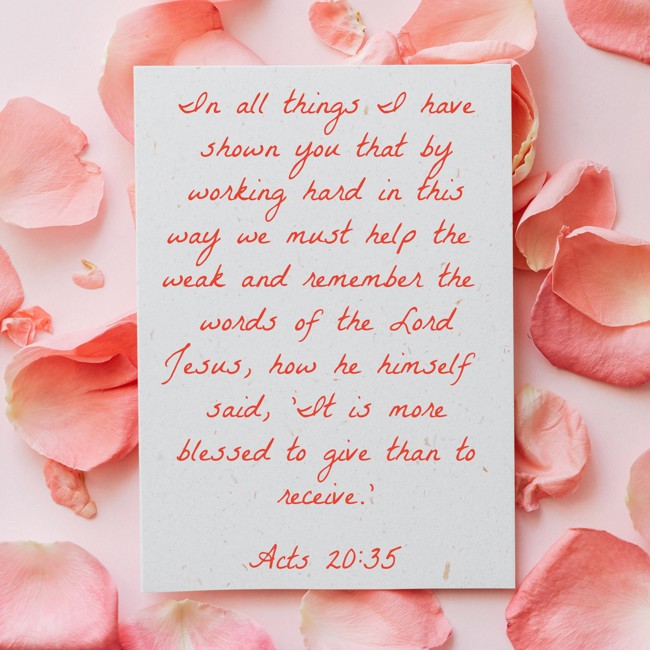 In all things I have
shown you that by
working hard in this
way we must help the
weak and remember the
words of the Lord
Jesus, how he himself
said, 'It is more
blessed to give than to
receive.'
Acts 20:35